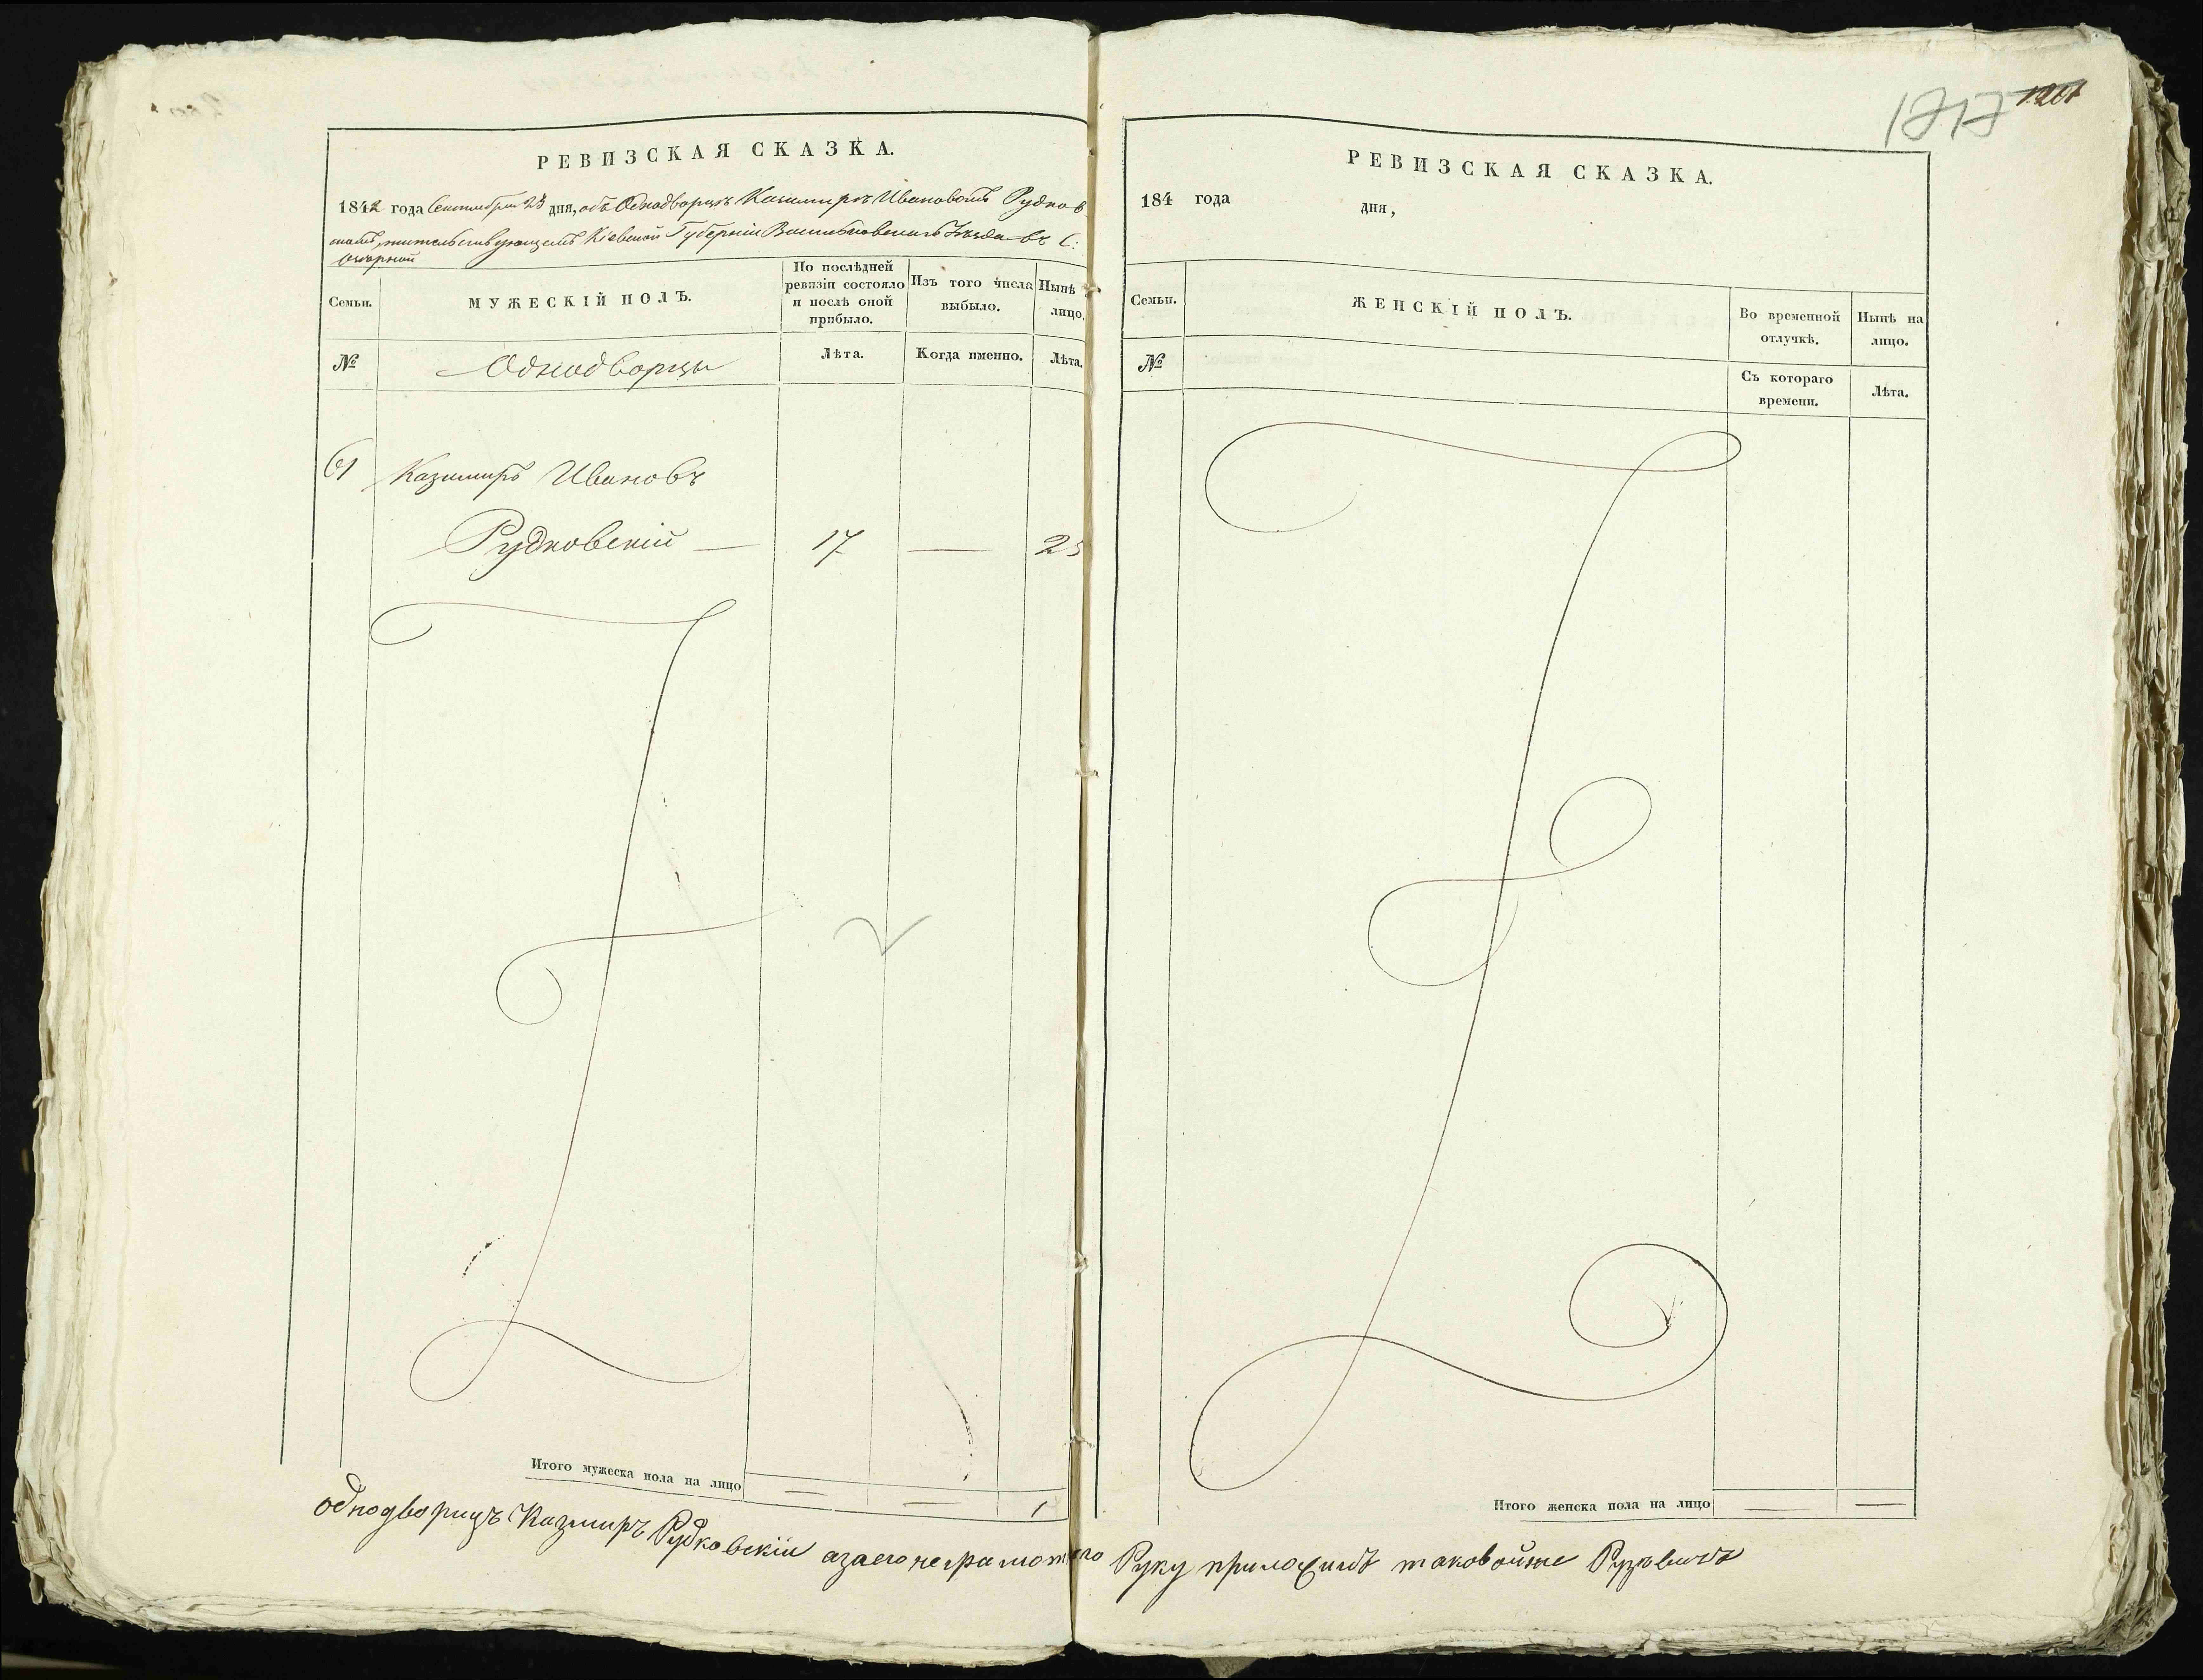 РЕВИЗСКАЯ СКАЗКА.
1842 года Сентября 23 дня, объ Однодворцѣ Казимирѣ Ивановомъ Рудков
скомъ, жительствующемъ Кіевской Губерніи Васильковскаго Уѣзда въ С:
Озерной
Семьи.
МУЖЕСКІЙ ПОЛЪ.
По послѣдней
ревизіи состояло
и послѣ оной
прибыло.
Изъ того числа
выбыло.
Нынѣ
лицо.
№
Однодворцы
Лѣта.
Когда именно.
Лѣта.
61
Казимиръ Ивановъ
Рудковскій — 17 —
Итого мужеска пола на лицо — — 1
однодворицъ Казмиръ Рудковскій азаего неграмотнаго Руку приложилъ таковойже
1717 1201
РЕВИЗСКАЯ СКАЗКА.
184 года дня,
Семьи.
ЖЕНСКІЙ ПОЛЪ.
Во временной
отлучкѣ.
Нынѣ на
лицо.
№
Съ котораго
времени.
Лѣта.
Итого женска пола на лицо — —